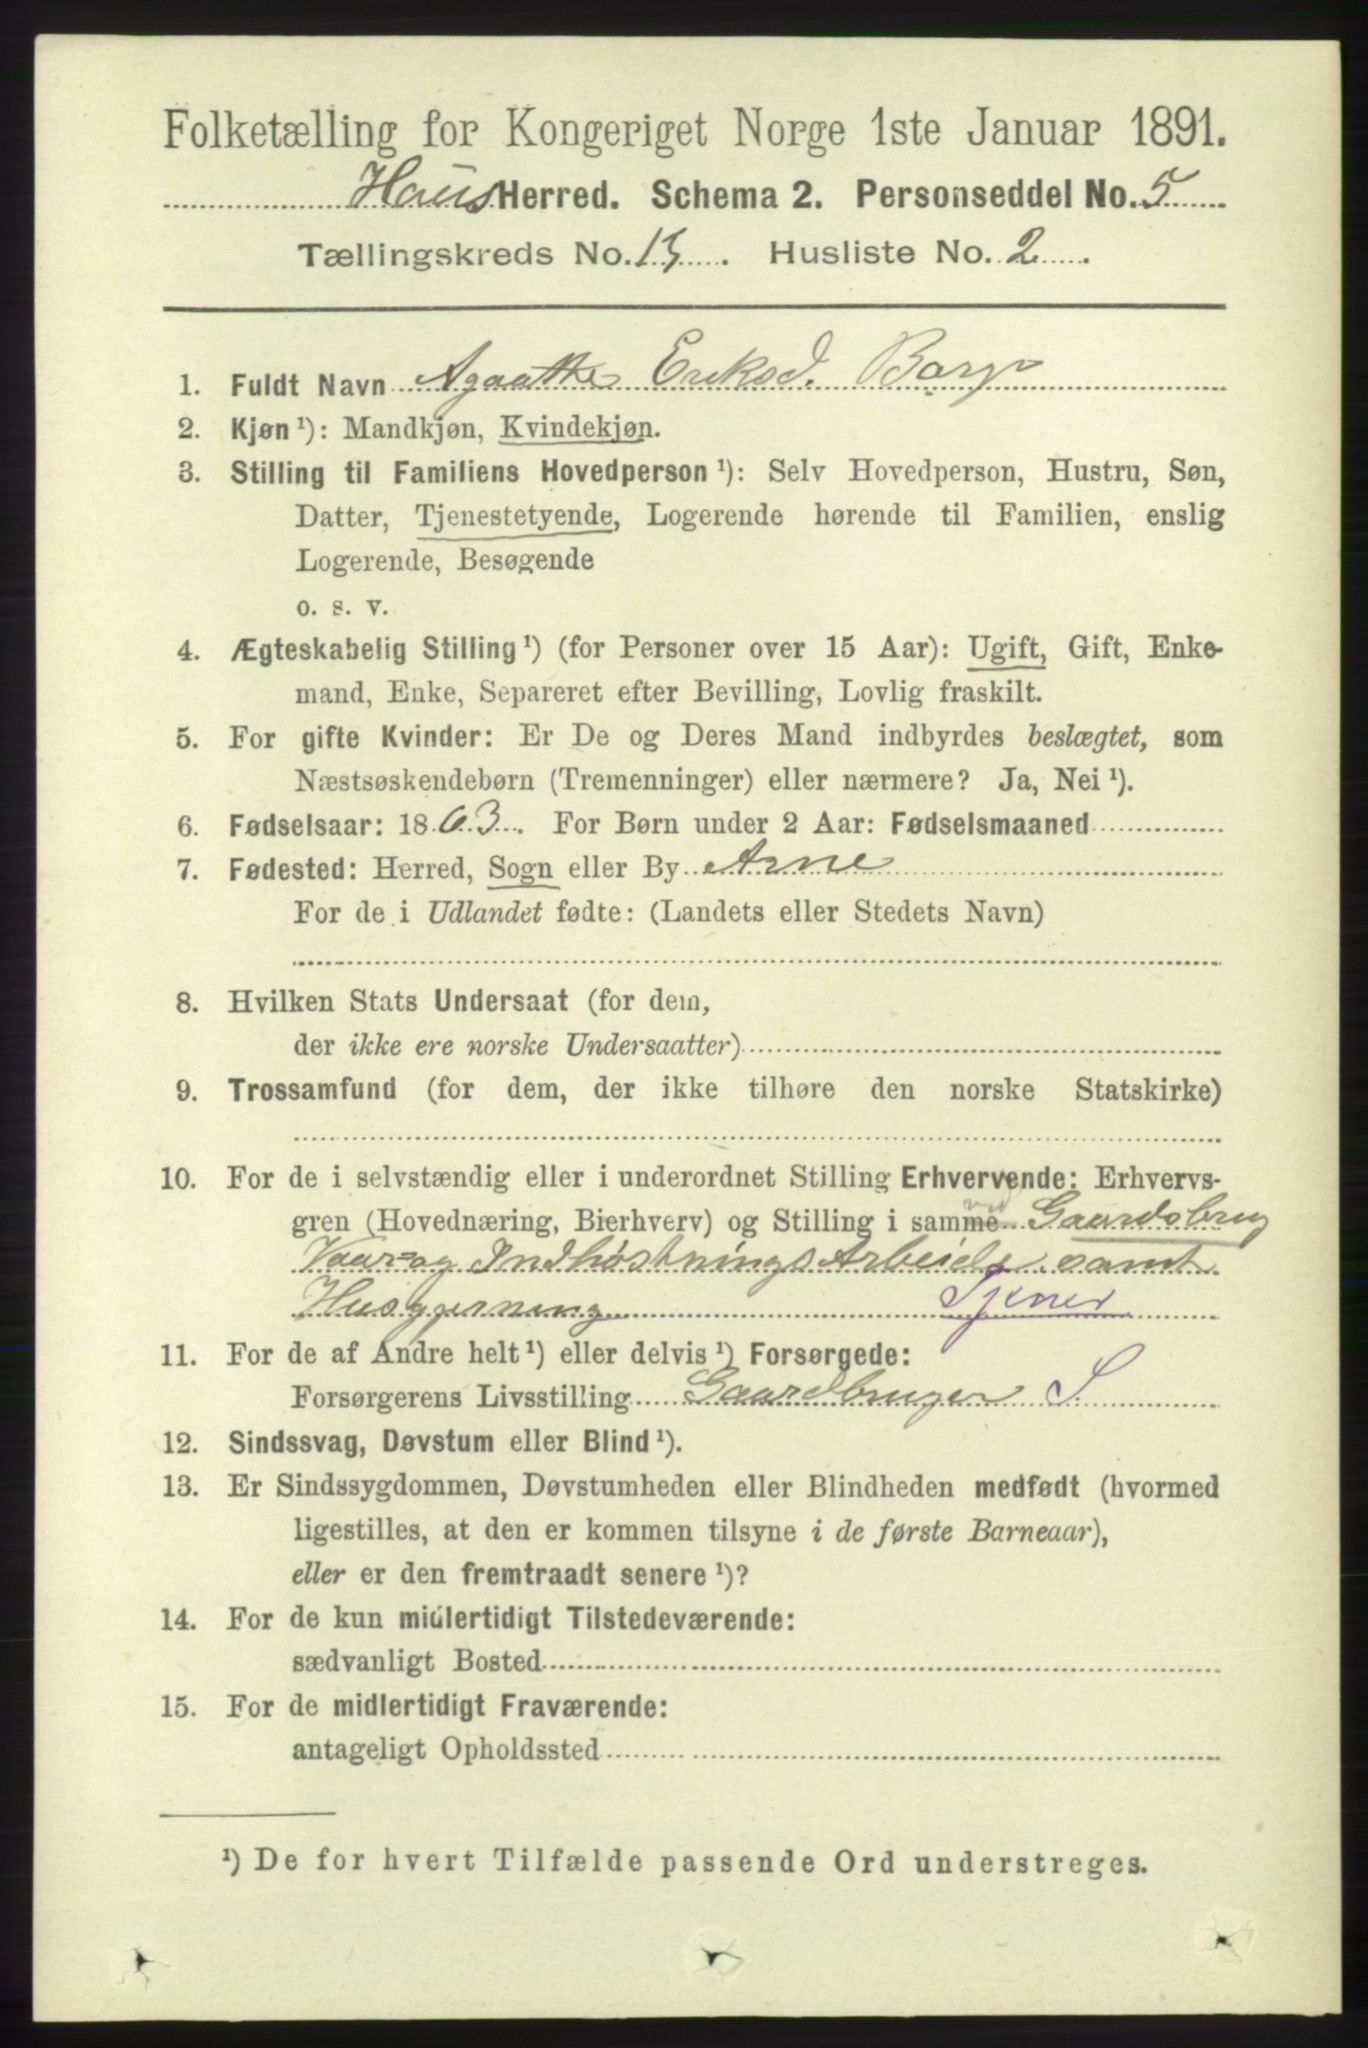 Folketælling for Kongeriget Norge 1ste Januar 1891.
Haus Herred. Schema 2. Personseddel No. 5
Tællingskreds No. 13. Husliste No. 2
1. Fuldt Navn Agaathe Eriksd. Borge
2. Kjøn ¹): Mandkjøn, Kvindekjøn.
3. Stilling til Familiens Hovedperson ¹): Selv Hovedperson, Hustru, Søn,
Datter, Tjenestetyende, Logerende hørende til Familien, enslig
Logerende, Besøgende
o. s. v.
4. Ægteskabelig Stilling ¹) (for Personer over 15 Aar): Ugift, Gift, Enke-
mand, Enke, Separeret efter Bevilling, Lovlig fraskilt.
5. For gifte Kvinder: Er De og Deres Mand indbyrdes beslægtet, som
Næstsøskendebørn (Tremenninger) eller nærmere? Ja, Nei ¹).
6. Fødselsaar: 1863. For Børn under 2 Aar: Fødselsmaaned
7. Fødested: Herred, Sogn eller By Arne
For de i Udlandet fødte: (Landets eller Stedets Navn)
8. Hvilken Stats Undersaat (for dem,
der ikke ere norske Undersaatter)
9. Trossamfund (for dem, der ikke tilhøre den norske Statskirke)
10. For de i selvstændig eller i underordnet Stilling Erhvervende: Erhvervs-
gren (Hovednæring, Bierhverv) og Stilling i samme Gaardsbrug
Vaar-og Indhøstnings Arbeide samt
Husgjerning Tjener
11. For de af Andre helt ¹) eller delvis ¹) Forsørgede:
Forsørgerens Livsstilling Gaardbruger S
12. Sindssvag, Døvstum eller Blind ¹).
13. Er Sindssygdommen, Døvstumheden eller Blindheden medfødt (hvormed
ligestilles, at den er kommen tilsyne i de første Barneaar),
eller er den fremtraadt senere ¹)?
14. For de kun midlertidigt Tilstedeværende:
sædvanligt Bosted
15. For de midlertidigt Fraværende:
antageligt Opholdssted
¹) De for hvert Tilfælde passende Ord understreges.